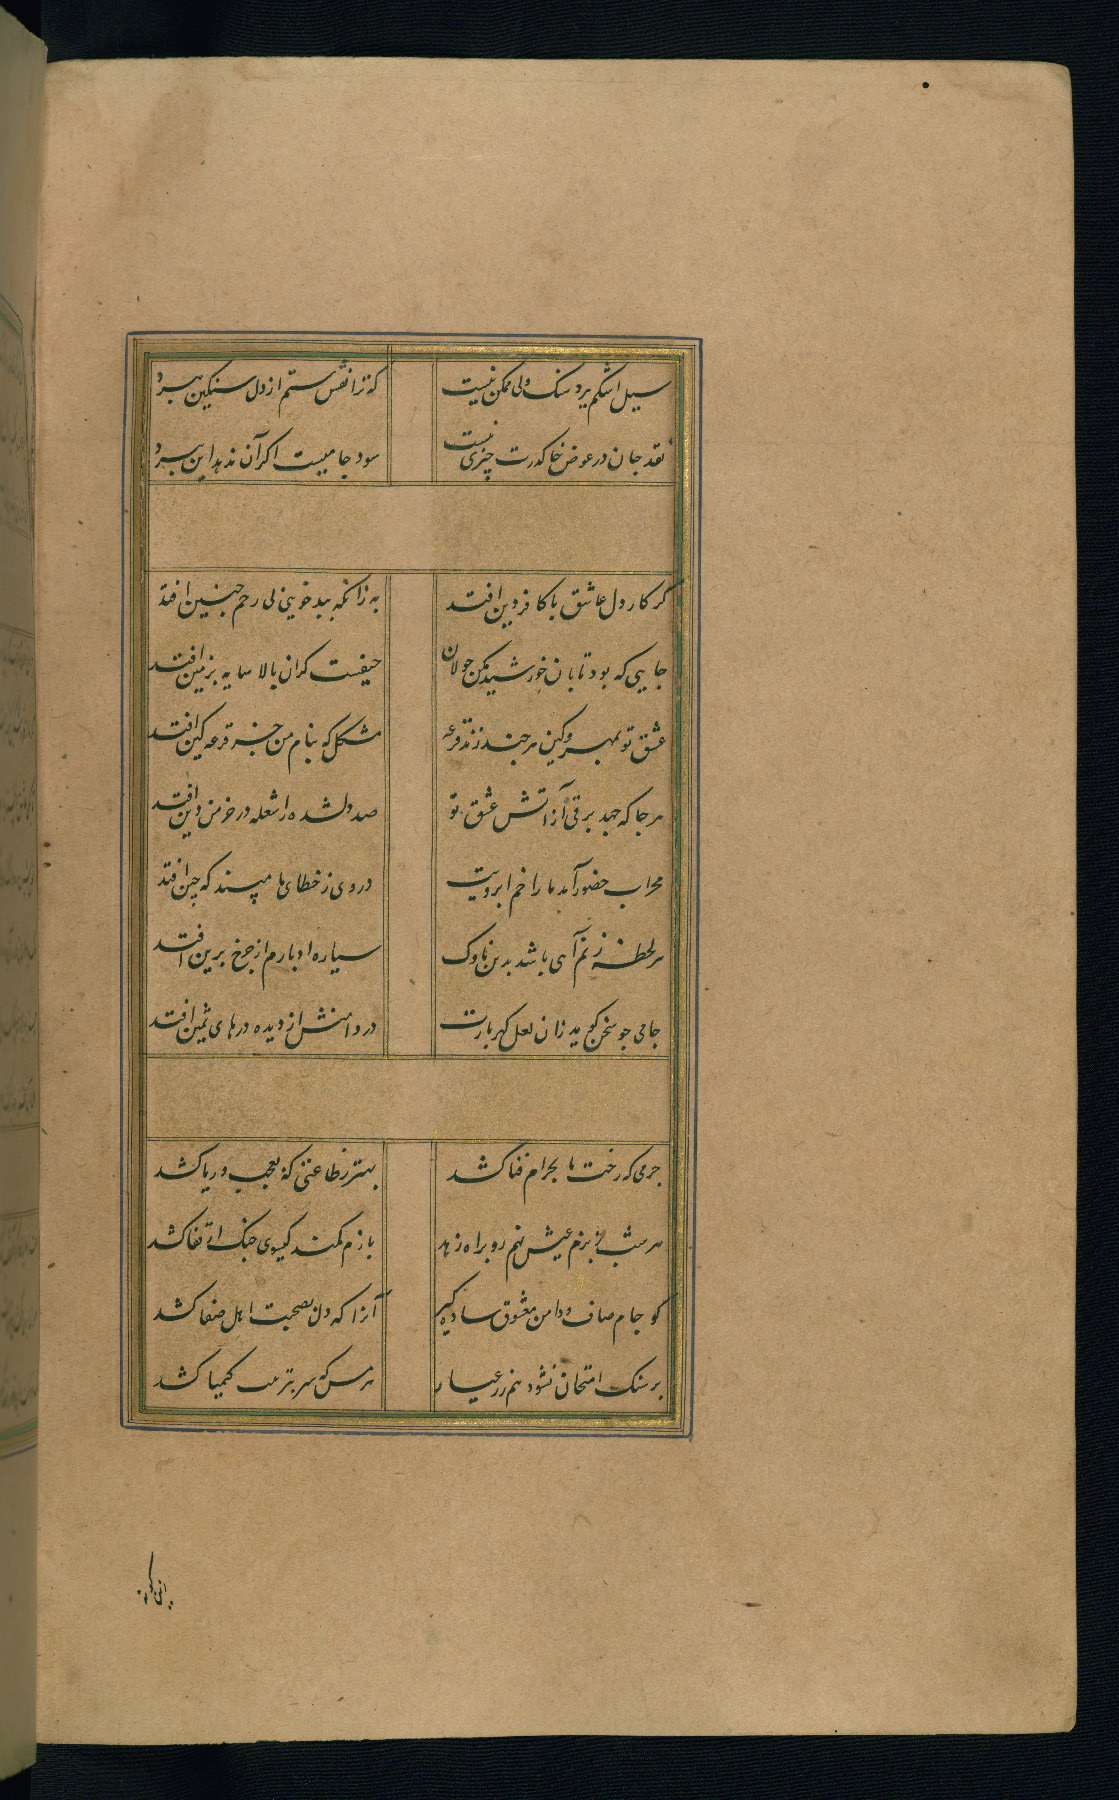 سیل اشکم برد سنک ولی ممکن نیست که ترا نقش ستم از دل سنکین ببرد
نقد جان در عوض خاک درت چیزی نیست سود جامیست اکر آن ندهد این ببرد
کر کار دل عاشق با کافر چین افتد به زانکه ببد خویی بی رحم چنین افتد
جایی که بود تابان خورشید مکن جولان حیفست کزان بالا سایه بزمین افتد
عشق تو بمهر و کین هر چند زند قرعه مشکل که بنام من جز قرعه کین افتد
هر جا که جهد برقی از آتش عشق تو صد دلشده را شعله در خرمن دین افتد
محراب حضور آمد ما را خم ابرویت در وی ز خطای ما مپسند که چین افتد
هر لحظه زنم آهی باشد بدین ناوک سیاره ادبارم از چرخ برین افتد
جامی چو سخن کوید زان لعل کهربارت در دامنش از دیده درهای ثمین افتد
جرمی که رخت ما بحرام فنا کشد بهتر ز طاعتی که بعجب و ریا کشد
هر شب ز بزم عیش نهم رو براه زهد بازم کمند کیسوی چنک از قفا کشد
کو جام صاف و دامن معشوق ساده کیر آنرا که دل بصحبت اهل صفا کشد
بر سنک امتحان نشود هم زر عیار هر مس که سر بتربیت کیمیا کشد